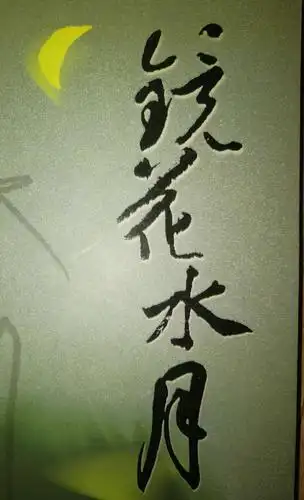 镜花水月